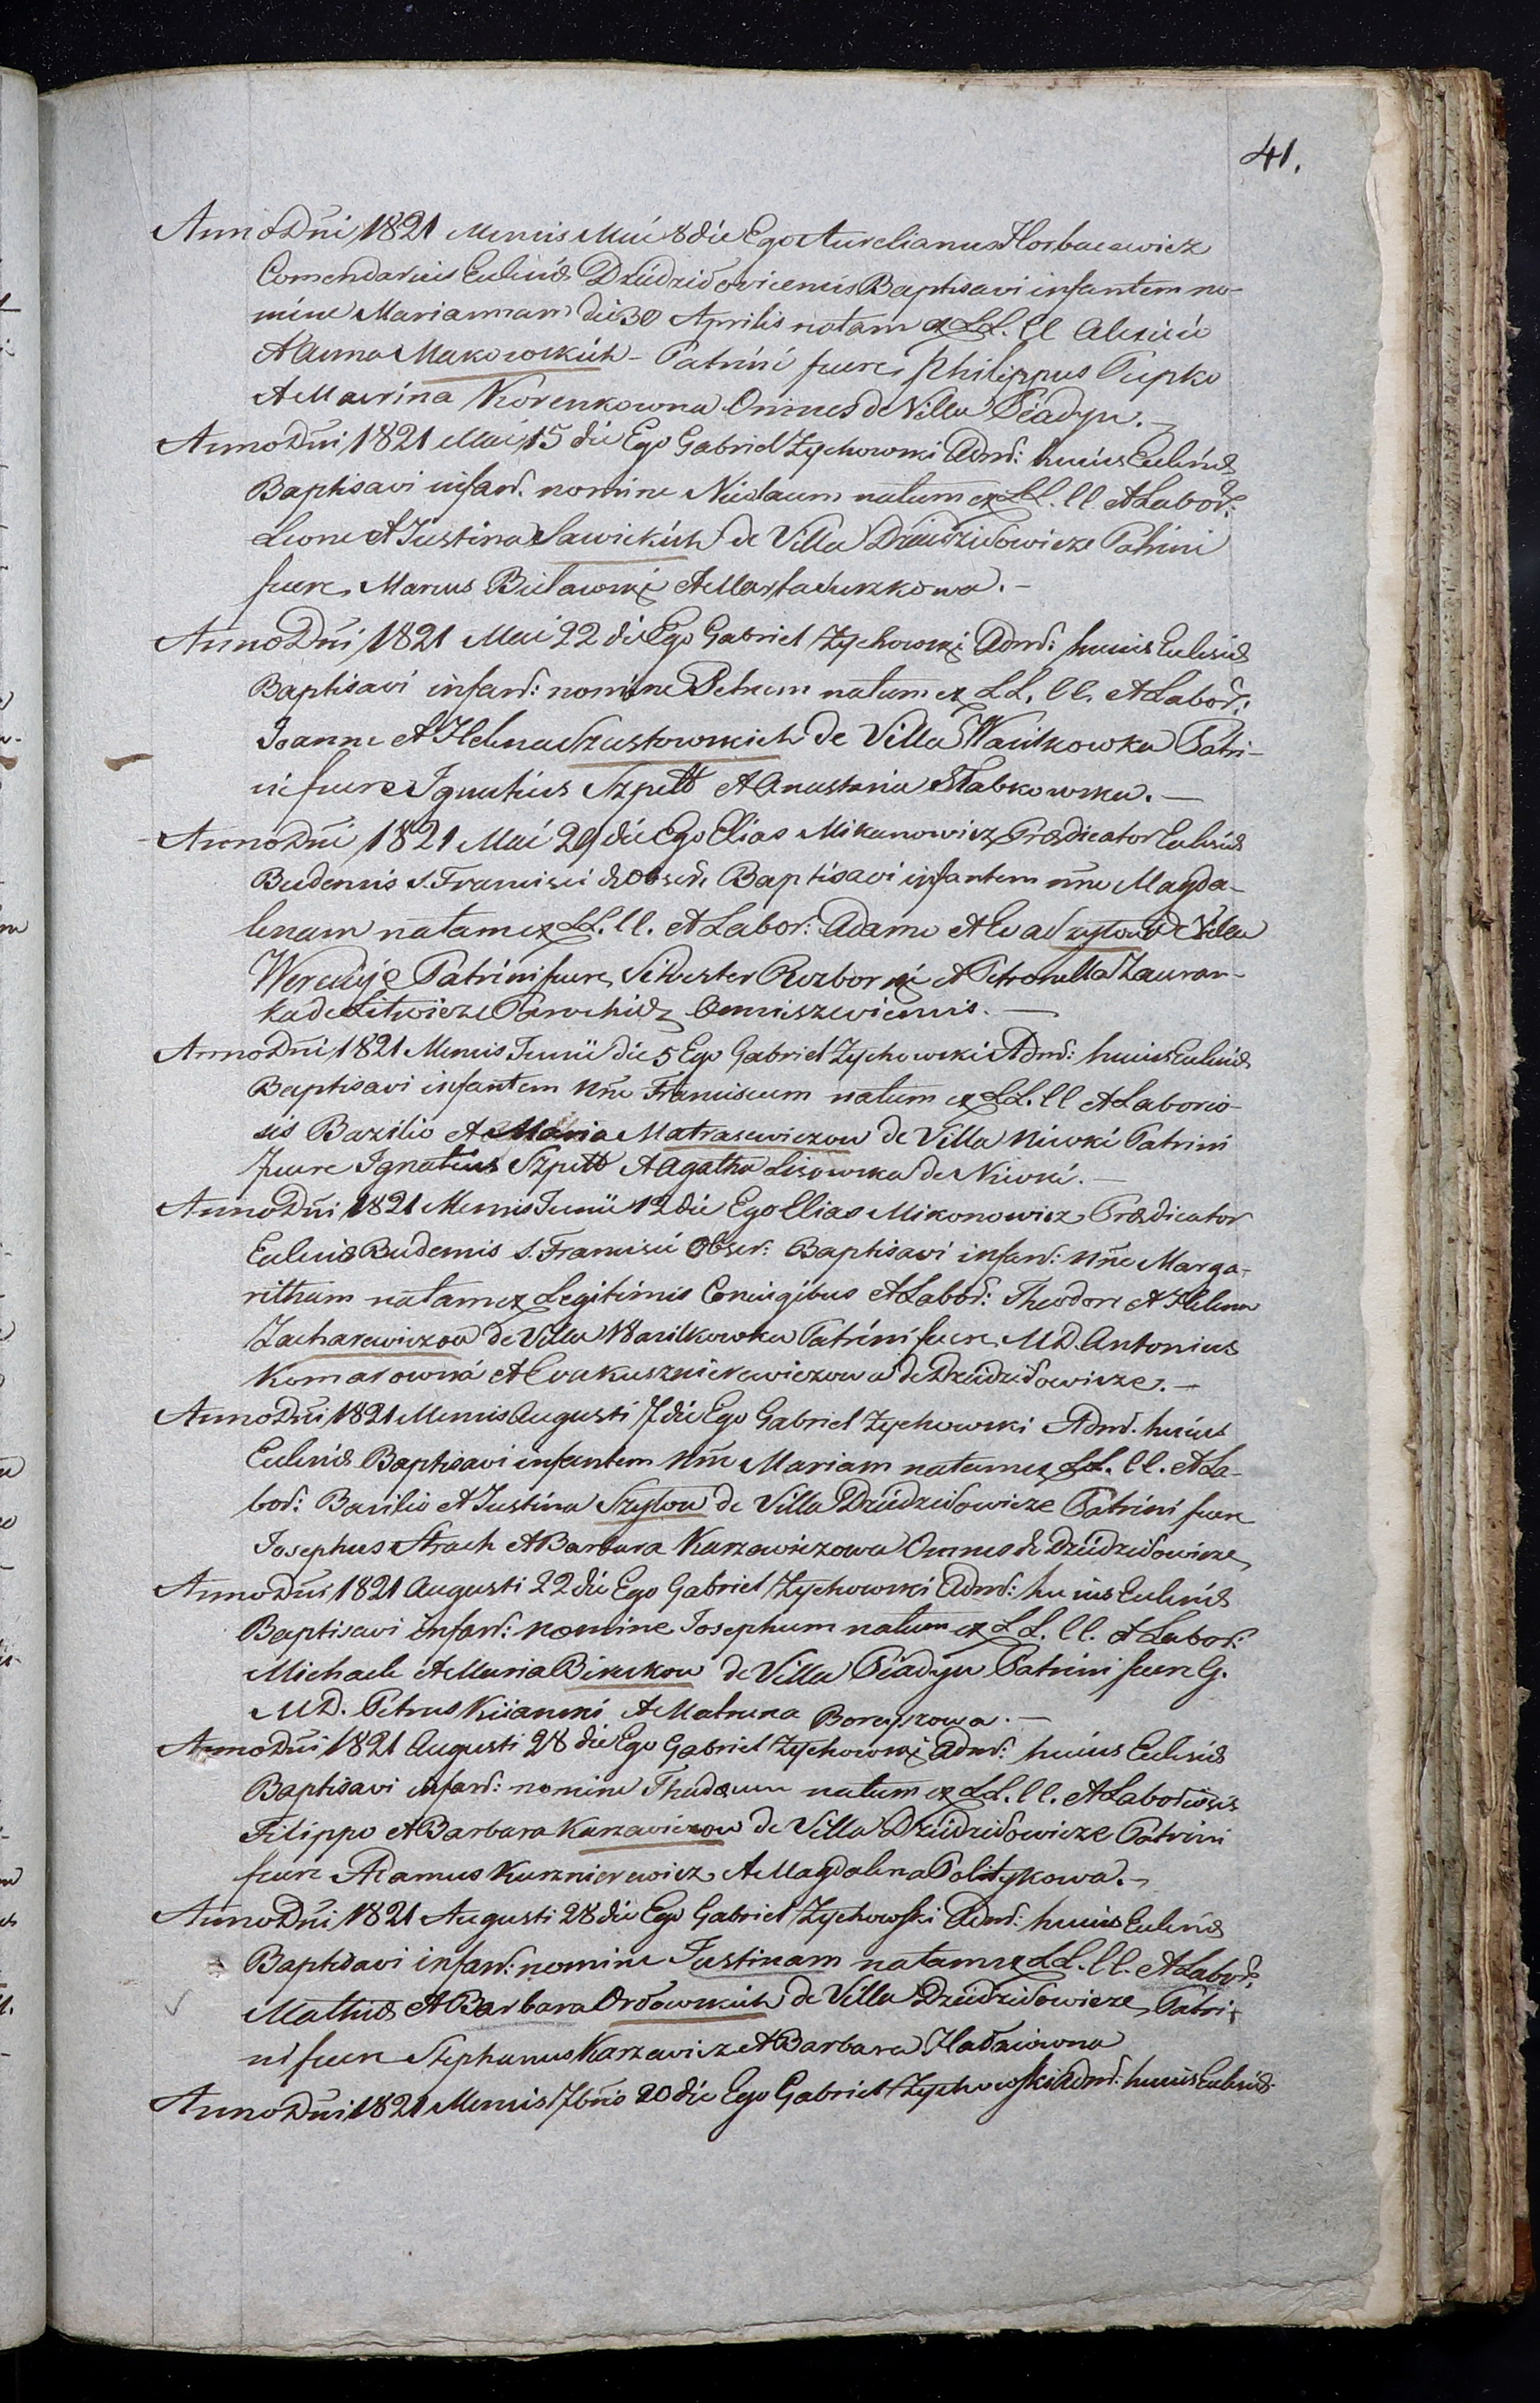 41.
Anno Dni 1821 Mensis Mai 8 die Ego Aurelianus Horbacewicz
Comendarius Ecclesiæ Dziudzidowicensis Baptisavi infantem no-
mine Mariannam die 30 Aprilis natam ex LL. ll Alexio
Et Anna Makowskich - Patrini fuere Philippus Pupko
Et Mavrina Korenkowna Omnes de Villa Piadyn. -
Anno Dni 1821 Mai 15 die Ego Gabriel Zychowski Admr: huius Ecclesiæ
Baptisavi infant. nomine Nicolaum natum ex LL. ll. Et Labor:
Leone Et Justina Sawickich de Villa Dziudzidowicze Patrini
fuere Marcus Bielawski Et Marta
Anno Dni 1821 Mai 22 die Ego Gabriel Zychowski Admr: huius Ecclesiæ
Baptisavi infant: nomine Petrum natum ex LL. ll. Et Labor:
Joanne Et Helena Szustowskich de Villa Wasilkowka Patri-
ni fuere Ignatius Szpett Et Anastasia Słabkowska. -
Anno Dni 1821 Mai 29 die Ego Elias Mikanowicz Prædicator Ecclesiæ
Budensis S. Francisci de Obser. Baptisavi infantem nne Magda-
lenam natam ex LL. ll. Et Labor: Adamo Et Eva Szylow de Villa
Wereduje Patrini fuere Silvester Rozborski Et Petronella Zauran-
ka de Litwicze Parochiæ Omniszewicensis. -
Anno Dni 1821 Mensis Junii die 5 Ego Gabriel Zychowski Admr: huius Ecclesiæ
Baptisavi infantem nne Franciscum natum ex LL. ll Et Laborio-
sis Bazilio Et Maria Matrasewiczow de Villa Niwki Patrini
fuere Ignatius Szpett Et Agatha Lisowska de Niwki. -
Anno Dni 1821 Mensis Junii 12 die Ego Elias Mikonowicz Prædicator
Ecclesiæ Budensis S. Francisci Obser: Baptisavi infant: nne Marga-
ritham natam ex Legitimis Coniugibus Et Labor: Theodore Et Helena
Zacharewiczow de Villa Wasilkowka Patrini fuere MD. Antonius
Komarowna Et Eva Kusznierewiczowa de Dziudzidowicze. -
Anno Dni 1821 Mensis Augusti 7 die Ego Gabriel Zychowski Admr. huius
Ecclesiæ Baptisavi infantem nne Mariam natam ex LL. ll. Et La-
bor: Basilio Et Justina Szylow de Villa Dziudzidowicze Patrini fuere
Josephus Strach Et Barbara Karzewiczowa Omnes de Dziudzidowicze
Anno Dni 1821 Augusti 22 die Ego Gabriel Zychowski Admr: huius Ecclesiæ
Baptisavi infant: nomine Josephum natum ex LL. ll. Et Labor:
Michaele Et Maria Birukow de Villa Piadyn Patrini fuere G.
MD. Petrus Kijanski Et Matruna Boreyszowa. -
Anno Dni 1821 Augusti 28 die Ego Gabriel Zychowski Admr: huius Ecclesiæ
Baptisavi infant: nomine Thadæum natum ex LL. ll. Et Laboriosis
Filippo Et Barbara Karzewiczow de Villa Dziudzidowicze Patrini
fuere Adamus Kusznierewicz Et Magdalena Politykowa. -
Anno Dni 1821 Augusti 28 die Ego Gabriel Zychowski Admr: huius Ecclesiæ
Baptisavi infant: nomine Justinam natam ex LL. ll. Et Labor:
Mathiæ Et Barbara Orłowskich de Villa Dziudzidowicze Patri-
ni fuere Stephanus Karzewicz Et Barbara Hładziowna
Anno Dni 1821 Mensis 7bris 20 die Ego Gabriel Zychowski Admr: huius Ecclesiæ